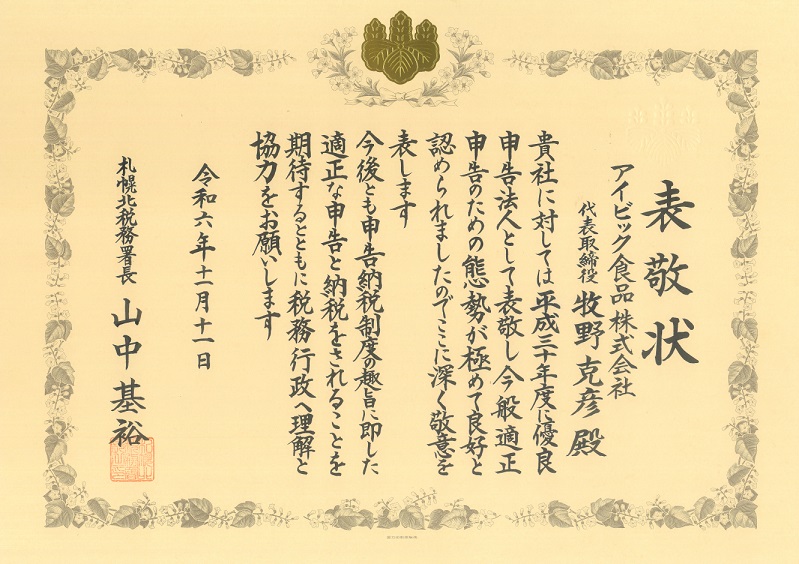 表敬状
アイビック食品株式会社
代表取締役 牧野克彦 殿
貴社に対しては平成三十年度に優良
申告法人として表敬し今般適正
申告のための態勢が極めて良好と
認められましたのでここに深く敬意を
表します
今後とも申告納税制度の趣旨に即した
適正な申告と納税をされることを
期待するとともに税務行政へ理解と
協力をお願いします
令和六年十一月十一日
札幌北税務署長 山中基裕